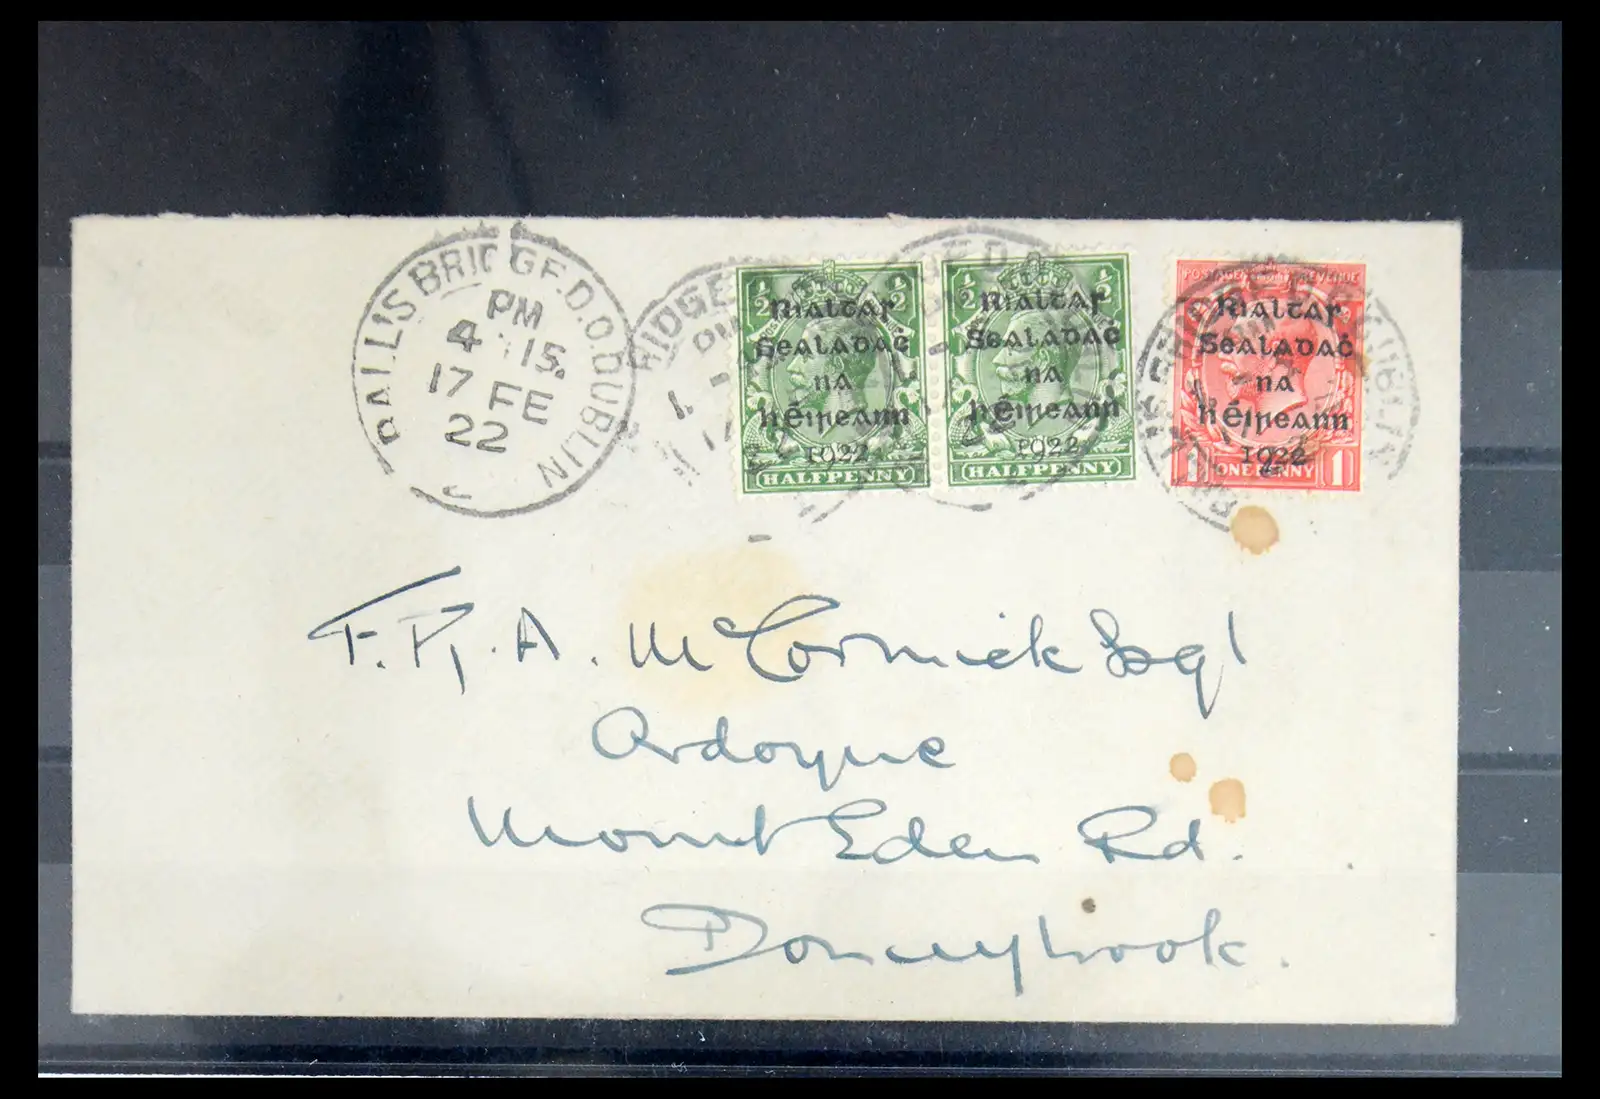 BALLSBRIDGE.D.O.DUBLIN
PM
4 15
17 FE
22
½ ½
Rialtas
Sealadaċ
na
hÉireann
1922
HALFPENNY
½ ½
Rialtas
Sealadaċ
na
hÉireann
1922
HALFPENNY
POSTAGE REVENUE
Rialtas
Sealadaċ
na
hÉireann
1922
1 ONE PENNY 1
McCormick Esq
Ardoyne
Mount Eden Rd.
Donnybrook.